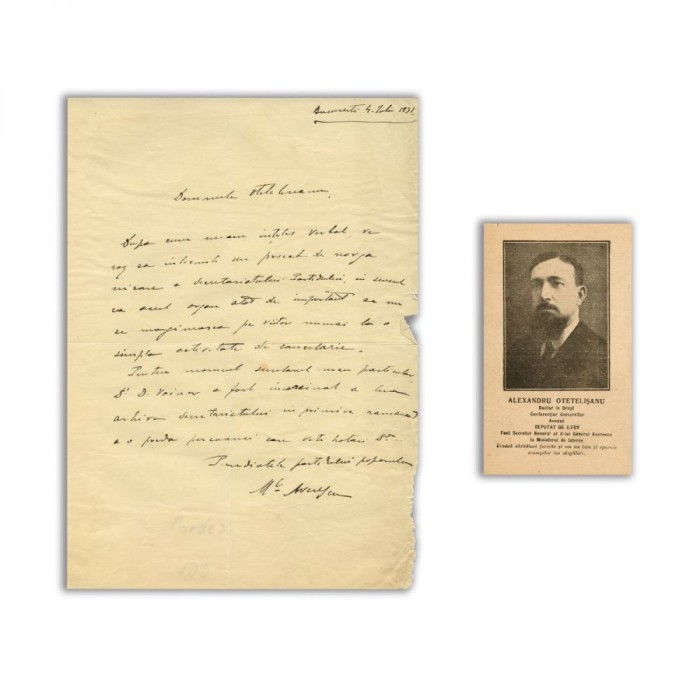 Bucuresti 4. Iulie 1931
Domnule Otetelisanu,
Dupa cum ne-am inteles verbal, va
rog sa intocmiti un proect de reorga
nizare a secretariatului Partidului, in sensul
ca acest organ atat de important sa nu
se margineasca pe viitor numai la o
simpla activitate de cancelarie.
Pentru moment secretarul meu particular,
Dl D. Voinov a fost insarcinat a lua
arhiva secretariatului in primire ramanand
a o preda persoanei care veti hotari Dvs.
Presedintele partidului poporului
Averescu
ALEXANDRU OTETELIŞANU
Doctor în Drept
Conferenţiar Universitar
Avocat
DEPUTAT DE ILFOV
Fost Secretar General al d-lui General Averescu
la Ministerul de Interne